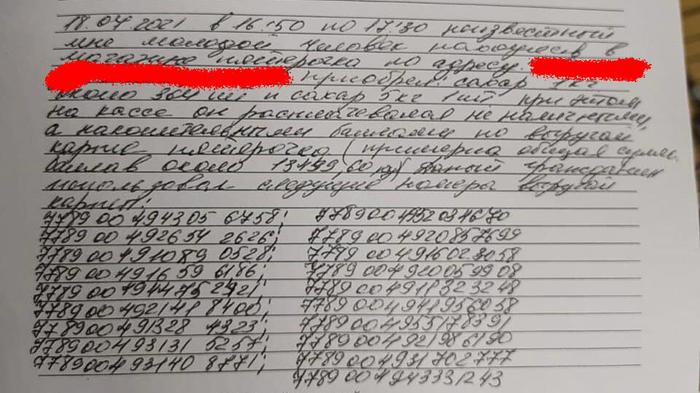 18.04.2021 в 16:50 по 17:30 неизвестный
мне молодой человек находясь в
магазине пятерочка по адресу
приобрел: сахар 1кг
около 364 шт и сахар 5кг 1шт, при этом
на кассе он расплачивался не наличными,
а накопительными баллами по выручай
карте пятерочка (примерна общая сумма
баллав около 13499,60 Данный гражданин
использовал следующие номера выручай
карты:
7789 00 494305 6758; 7789004952034670
7789 00 492654 2626; 7789004920857699
7789 00 491089 0528; 7789004916023058
7789 00 491659 6186; 7789004920059908
7789 00 494475 2921; 7789004918323248
7789 00 492141 8400; 7789004941956058
7789 00 491328 4323; 7789004955178391
7789 00 493131 5257; 7789004921986190
7789 00 493140 8771; 7789004931702777
7789004943331243